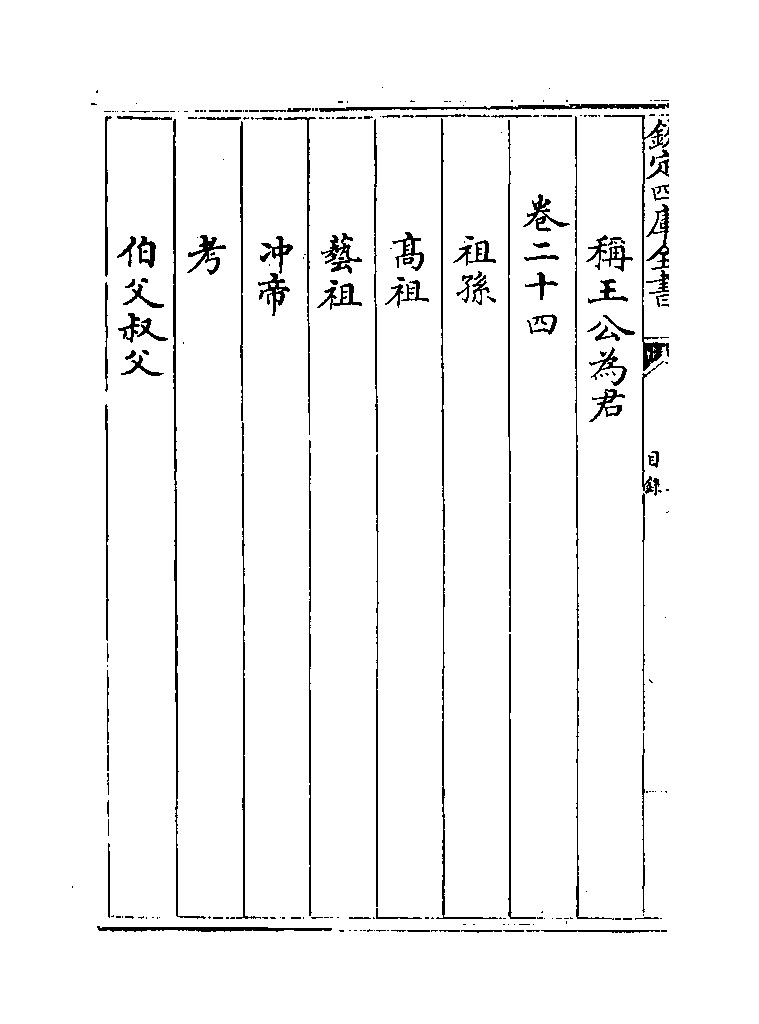 欽定四庫全書
目錄
稱王公為君
卷二十四
祖孫
髙祖
藝祖
冲帝
考
伯父叔父